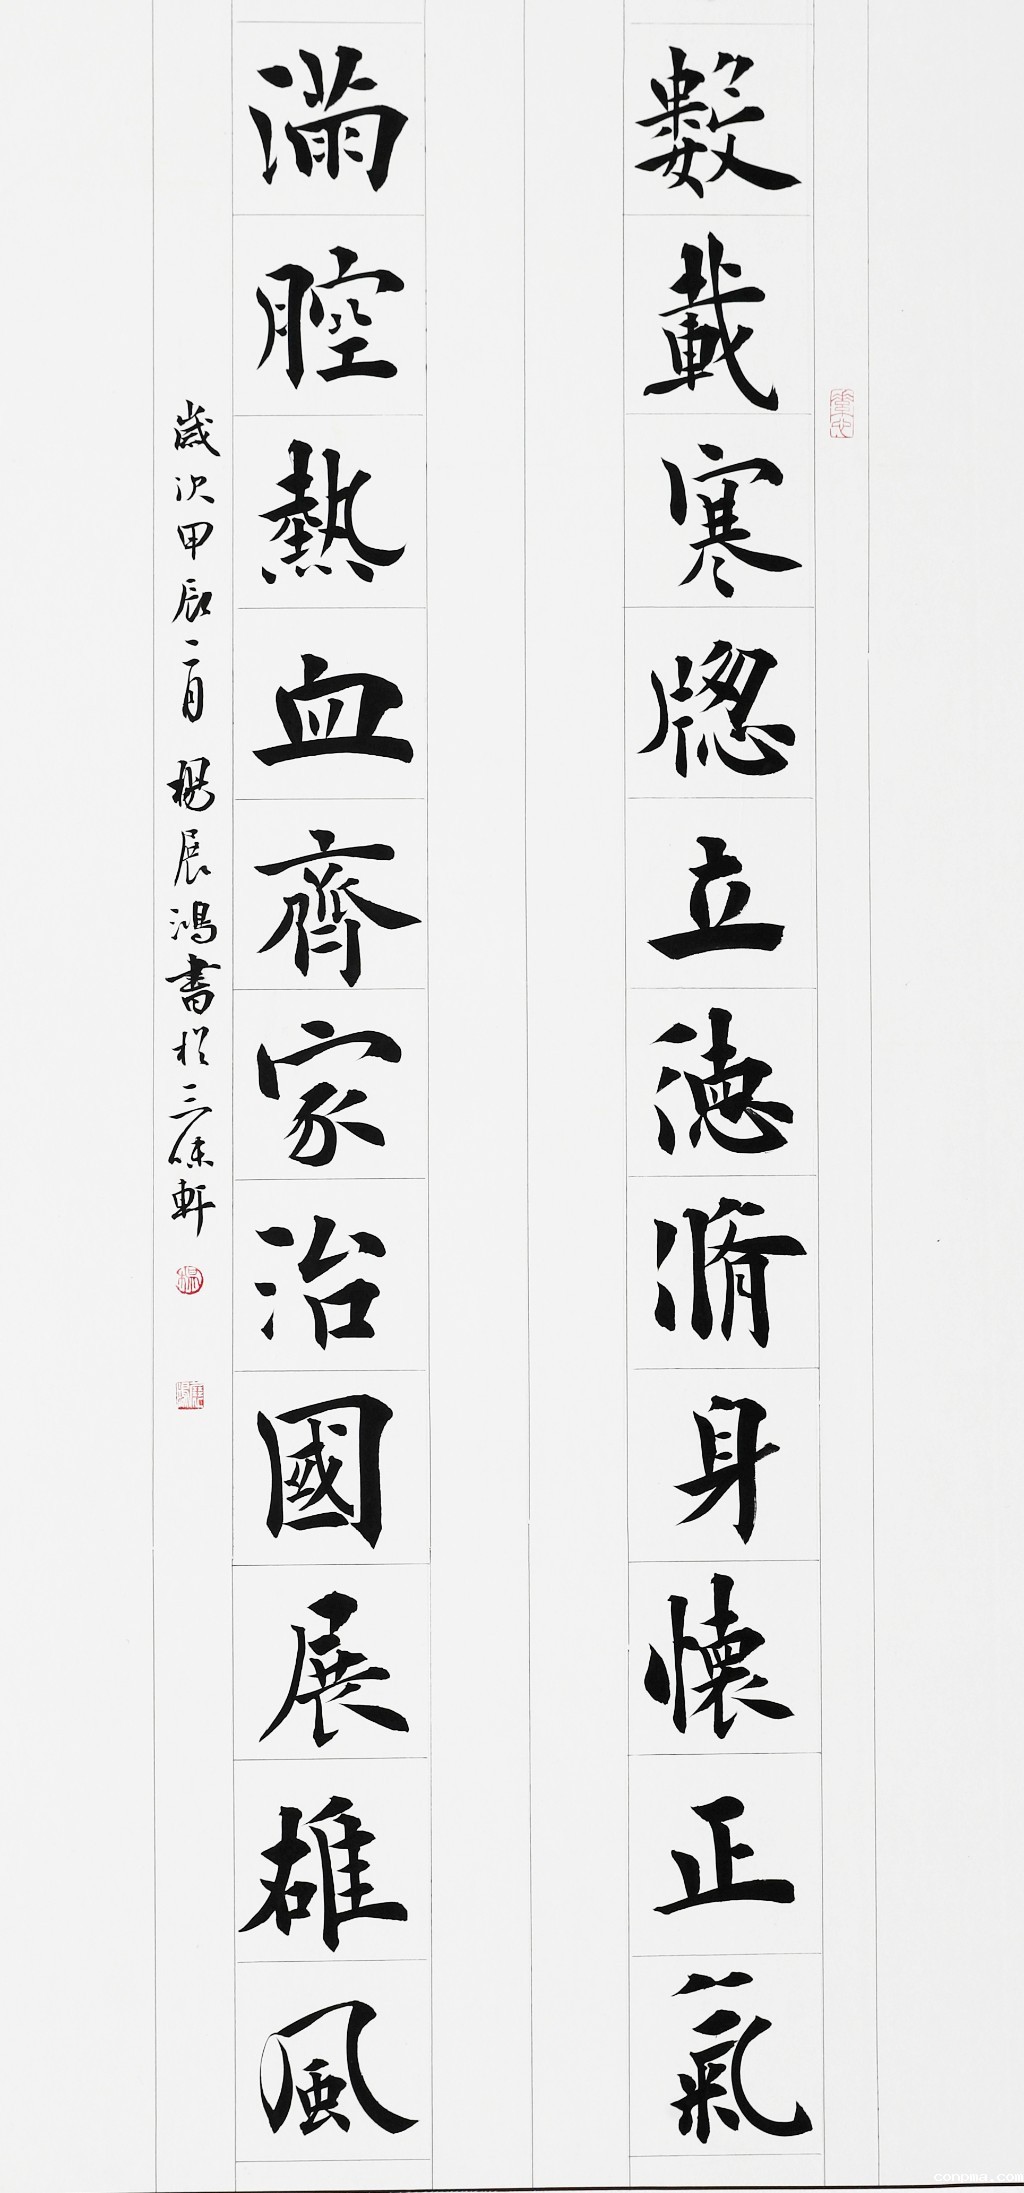 數載寒窻立德脩身懷正氣
滿腔熱血齊家治國展雄風
歲次甲辰二月 楊展鴻書於三保軒
conpma.com